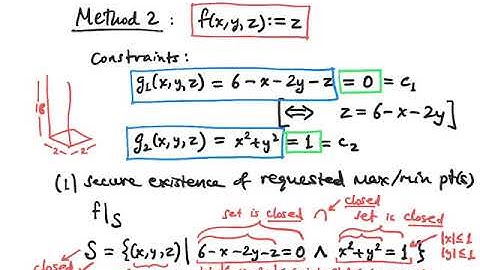 Method 2 : f(x,y,z):=z
Constraints:
g₁(x,y,z) = 6-x-2y-z = 0 = c₁
[⟺ z=6-x-2y]
g₂(x,y,z) = x²+y² = 1 = c₂
18
2 2
(1) Secure existence of requested max/min pt(s)
closed
f|S set is closed ∩ set is closed
S = {(x,y,z) | 6-x-2y-z=0 ∧ x²+y²=1} |x|≤1
|y|≤1
closed